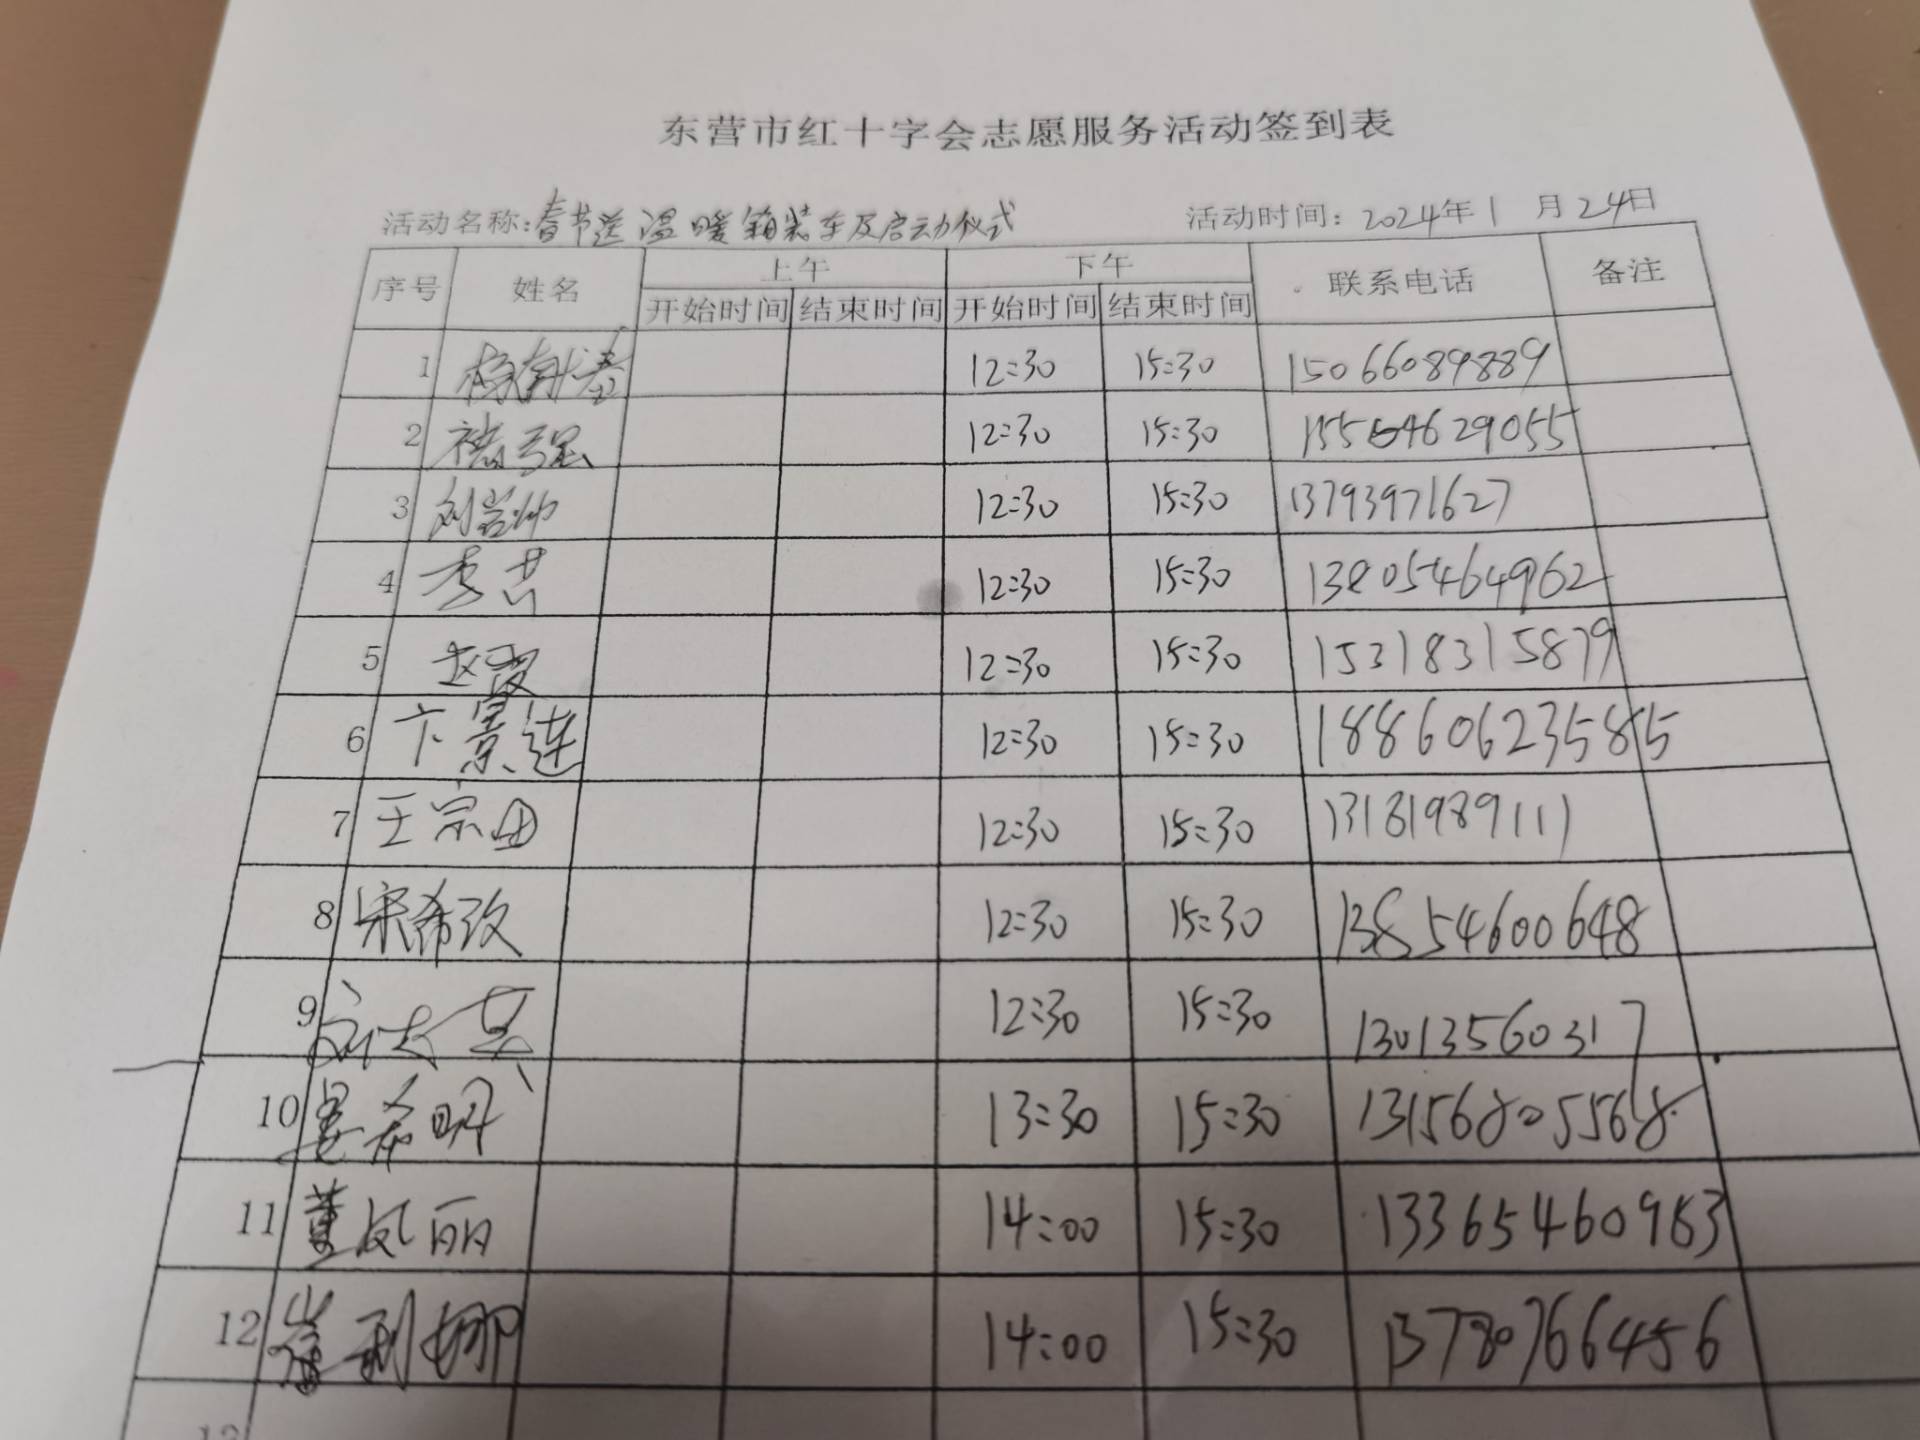 东营市红十字会志愿服务活动签到表
活动名称:春节送温暖箱装车及启动仪式 活动时间: 2024年1月24日
序号 姓名 上午 下午 联系电话 备注
开始时间 结束时间 开始时间 结束时间
1 12:30 15:30 15066089889
2 褚强 12:30 15:30 15564629055
3 刘岩帅 12:30 15:30 13793971627
4 12:30 15:30 13805464962
5 赵霞 12:30 15:30 15318315879
6 卞景连 12:30 15:30 18860623585
7 王宗田 12:30 15:30 13181989111
8 宋希孜 12:30 15:30 13854600648
9 12:30 15:30 13013560317
10 希明 13:30 15:30 13156805568
11 董凤丽 14:00 15:30 13365460983
12 崔利娜 14:00 15:30 13780766456
13